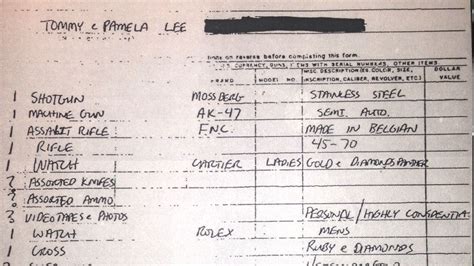 TOMMY & PAMELA LEE
limits on reverse before completing this form.
CURRENCY, GUNS, ITEMS WITH SERIAL NUMBERS, OTHER ITEMS
BRAND MODEL NO. MISC DESCRIPTION (EG. COLOR, SIZE, INSCRIPTION, CALIBER, REVOLVER, ETC.) DOLLAR VALUE
1 SHOTGUN MOSSBERG STAINLESS STEEL
1 MACHINE GUN AK-47 SEMI. AUTO.
1 ASSAULT RIFLE FNC. MADE IN BELGIAN
1 RIFLE 45-70
1 WATCH CARTIER LADIES GOLD & DIAMONDS
? ASSORTED KNIFES
? ASSORTED AMMO.
3 VIDEO TAPES & PHOTOS PERSONAL/HIGHLY CONFIDENTIAL
1 WATCH ROLEX MENS
1 CROSS RUBY & DIAMONDS